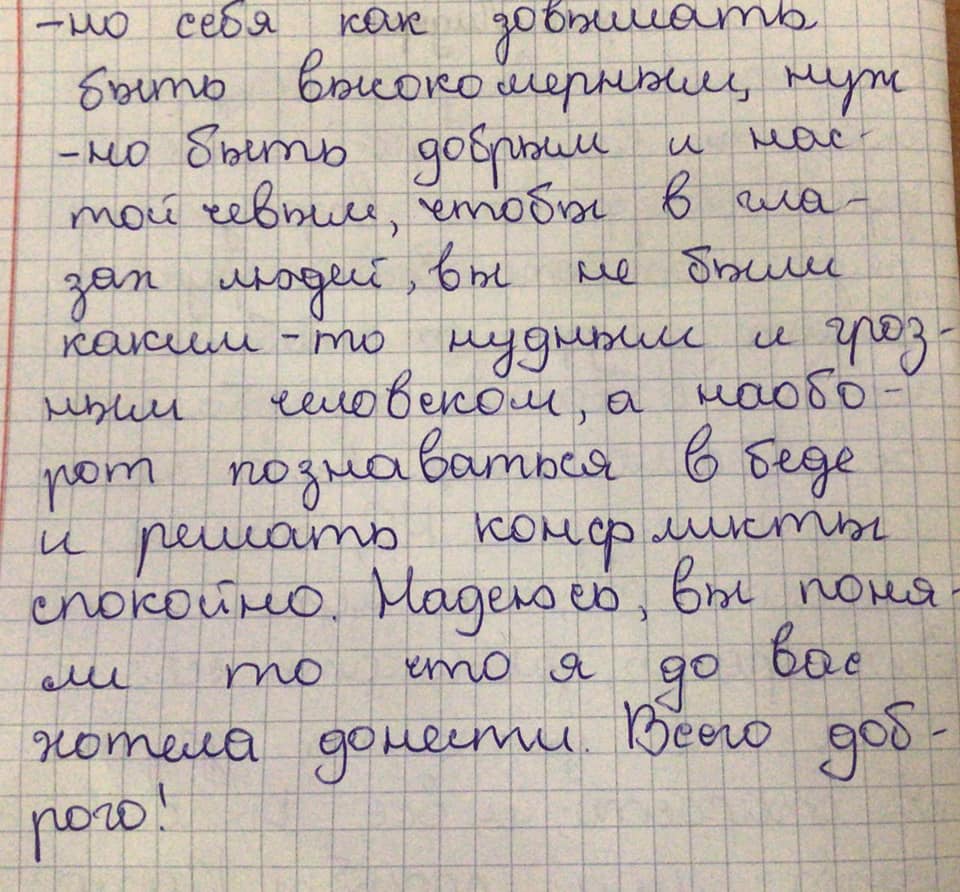 -но себя как зовышать
быть высокомерным, нуж
-но быть добрым и нас-
той чевым, чтобы в гла-
зах людей, вы не были
каким-то нудным и гроз-
ным человеком, а наобо-
рот познаваться в беде
и решать конфликты
спокойно. Надеюсь, вы поня-
ли то что я до вас
хотела донести. Всего доб-
рого!